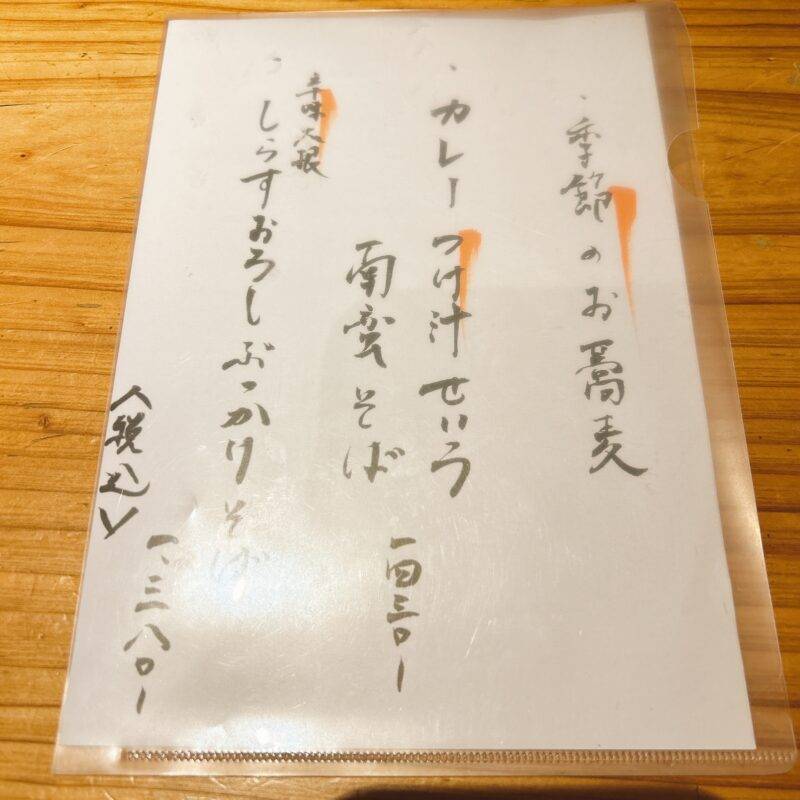 ・季節のお蕎麦
・カレーつけ汁せいろ
南蛮そば
一四三〇ー
・辛味大根
しらすおろしぶっかけそば
一、三八〇ー
〈税込〉